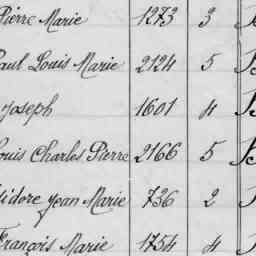 Pierre Marie 1273 3
Paul Louis Marie 2124 5
Joseph 1601 4
Louis Charles Pierre 2166 5
Isidore Jean Marie 736 2
François Marie 1754 4